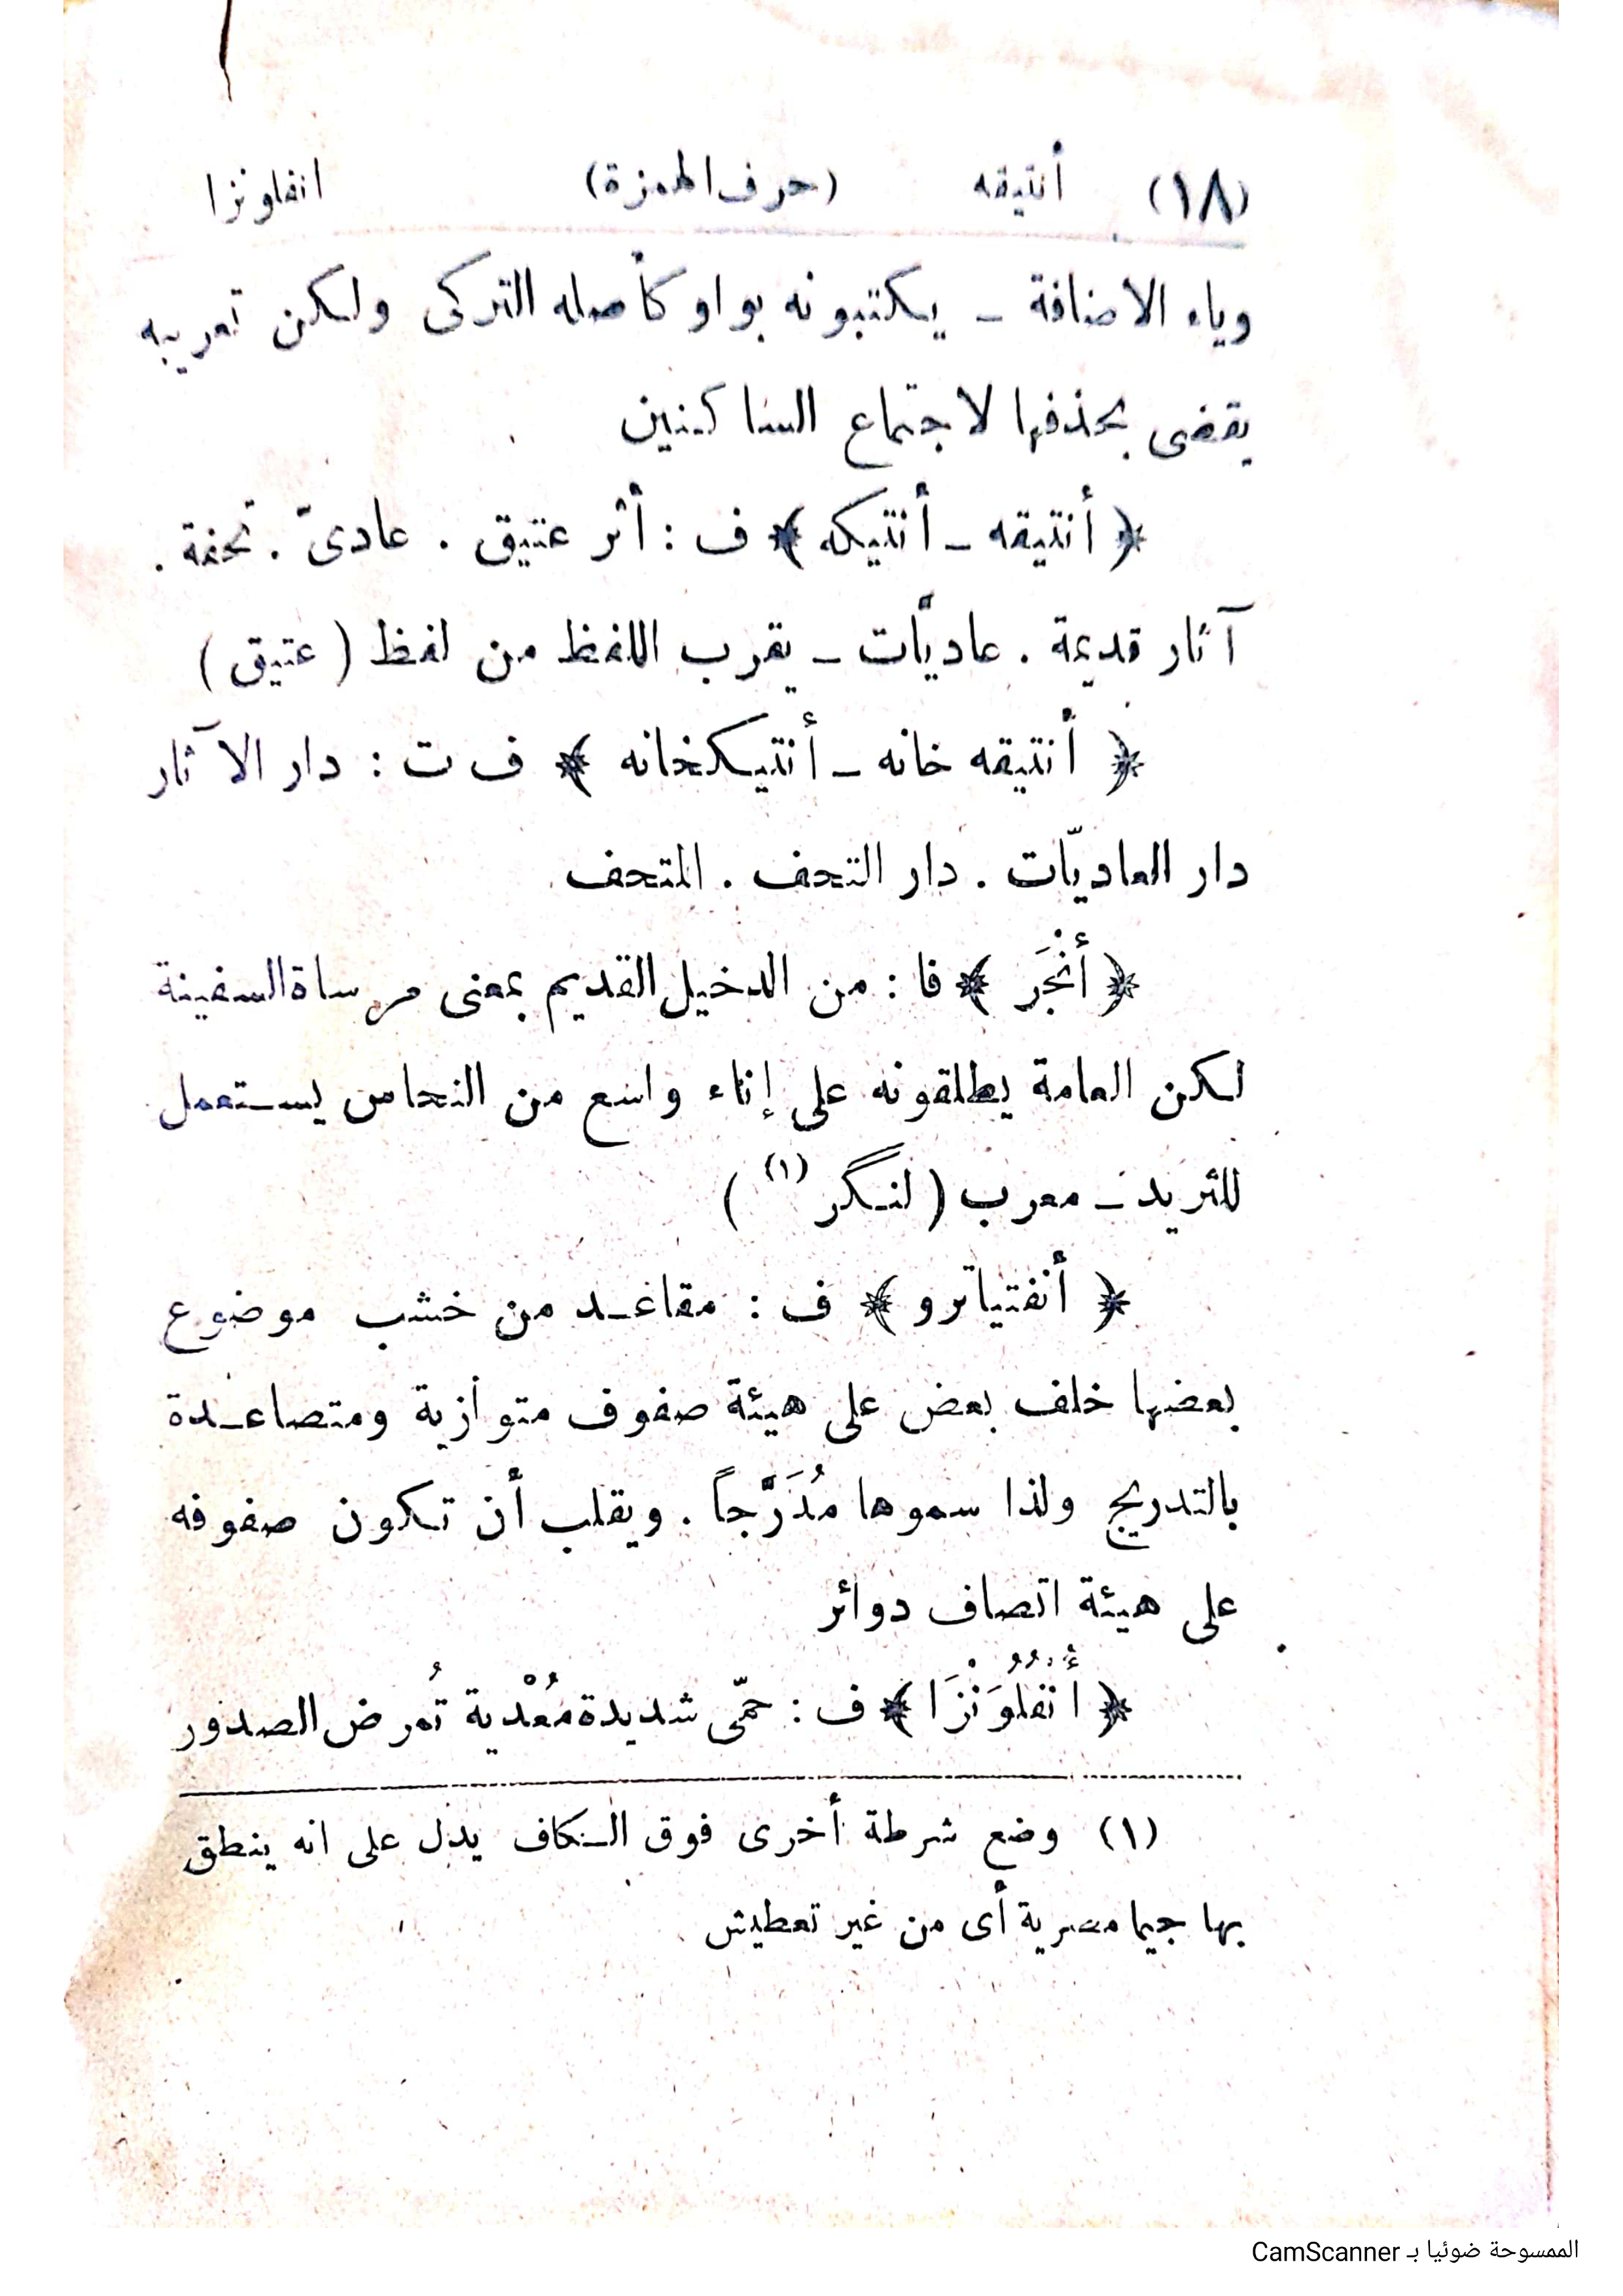 (١٨) أنتيقه (حرف الهمزة) انفلونزا
وياء الاضافة ـ يكتبونه بواو كأصله التركى ولكن تعريبه
يقضى بحذفها لاجتماع الساكنين
﴿ أنتيقه ـ أنتيكه ﴾ ف : أثر عتيق . عادىّ . تحفة .
آثار قديمة . عاديّات ـ يقرب اللفظ من لفظ ( عتيق )
﴿ أنتيقه خانه ـ أنتيكخانه ﴾ ف ت : دار الآثار
دار العاديّات . دار التحف . المتحف
﴿ أنْجَر ﴾ فا : من الدخيل القديم بمعنى مرساة السفينة
لكن العامة يطلقونه على إناء واسع من النحاس يستعمل
للثريد ـ معرب ( لنگر (١) )
﴿ أنفتياترو ﴾ ف : مقاعد من خشب موضوع
بعضها خلف بعض على هيئة صفوف متوازية ومتصاعدة
بالتدريج ولذا سموها مُدَرَّجاً . ويقلب أن تكون صفوفه
على هيئة اتصاف دوائر
﴿ أُنْفُلُوَنْزَا ﴾ ف : حمّى شديدة مُعْدية تُمرض الصدور
(١) وضع شرطة أخرى فوق الكاف يدل على انه ينطق
بها جيما مصرية أى من غير تعطيش
الممسوحة ضوئيا بـ CamScanner